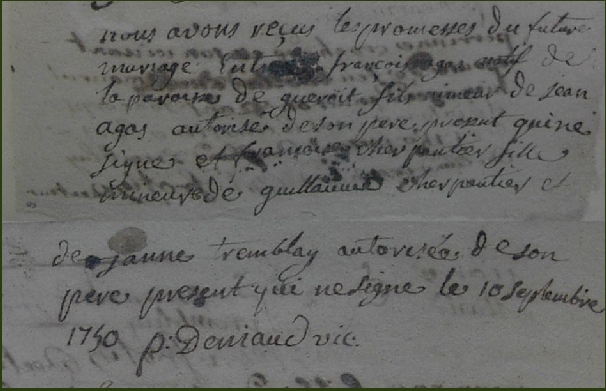 nous avons reçus les promesses du future
mariage Entre françois agas natif de
la paroisse de fils mineur de jean
agas autorisé de son pere present qui ne
signe et françoise cherpantier fille
mineure de guillaume cherpantier et
de janne tremblay autorisée de son
pere present qui ne signe le 10 septembre
1750 p: Deniaud vic.